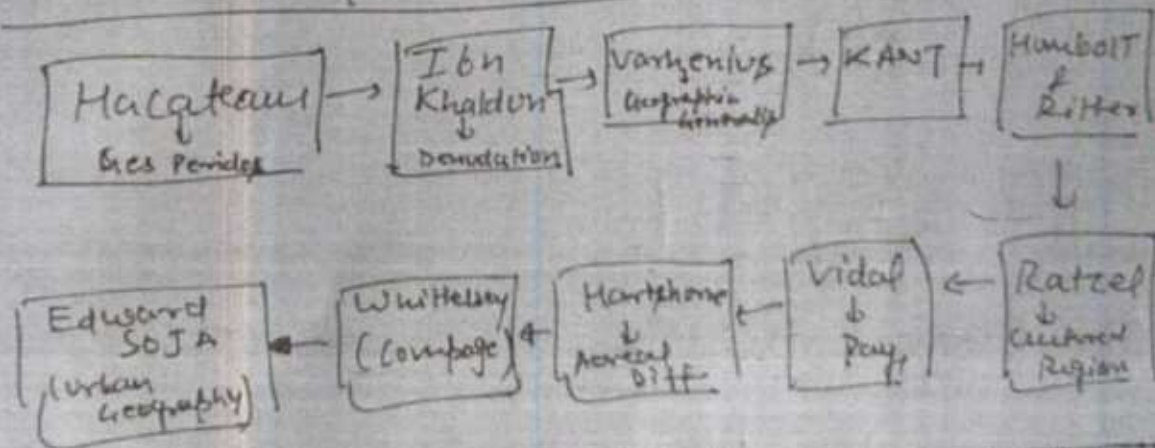 Hacqteaus
Ges Periodos
Ibn
Khaldun
Denudation
Varhenius
Geographia
Generalis
KANT
HumbolT
&
Ritter
Ratzel
Cultural
Region
Vidal
Pays
Hartshorne
Aereal
Diff
Whittelsey
(Compage)
Edward
SOJA
(Urban
Geography)